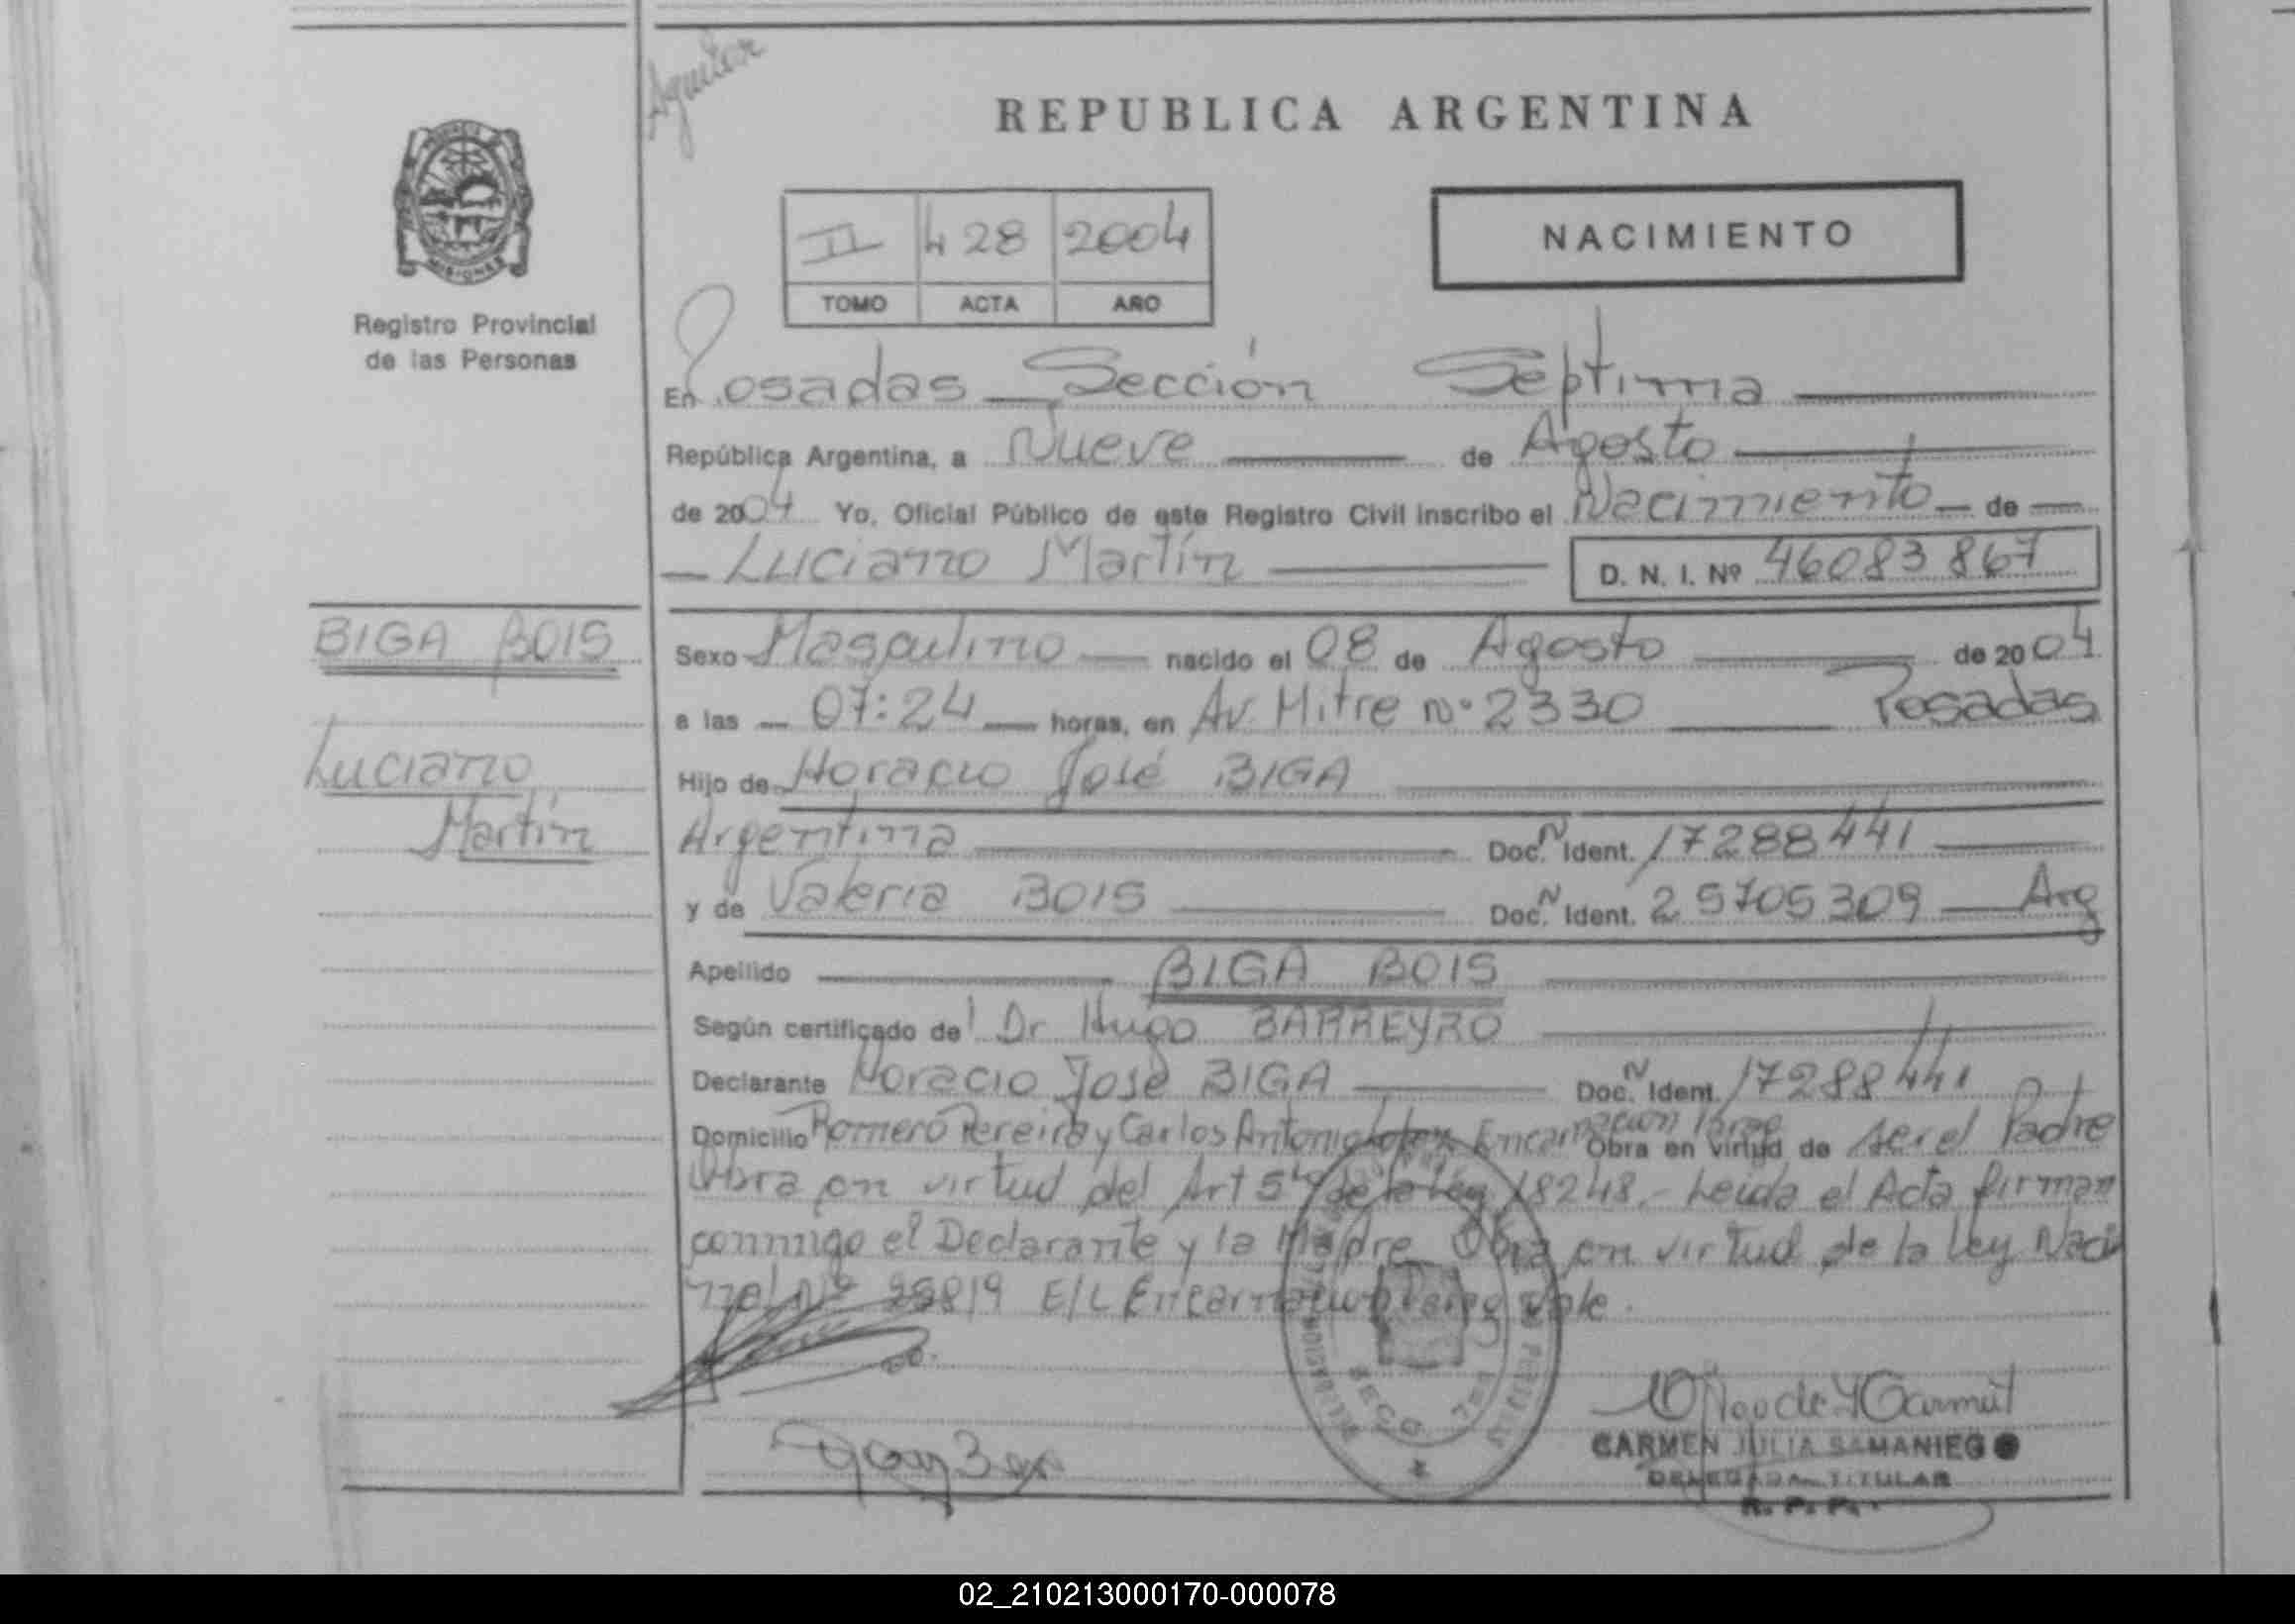 Aguilar
REPUBLICA ARGENTINA
MISIONES
Registro Provincial
de las Personas
II 428 2004
TOMO ACTA AÑO
NACIMIENTO
En Posadas Sección Séptima
República Argentina, a Nueve de Agosto
de 2004 Yo, Oficial Público de este Registro Civil inscribo el Nacimiento de
Luciano Martín D. N. I. Nº 46083867
BIGA BOIS
Luciano
Martín
Sexo Masculino nacido el 08 de Agosto de 2004
a las 07:24 horas, en Av. Mitre Nº 2330 Posadas
Hijo de Horacio José BIGA
Argentina Doc. N Ident. 17288441
y de Valeria BOIS Doc. N Ident. 25705309 Arg
Apellido BIGA BOIS
Según certificado de Dr Hugo BARREYRO
Declarante Horacio José BIGA Doc. N Ident. 17288441
Domicilio Romero Pereira y Carlos Antonio Lopez Encarnacion Obra en virtud de ser el Padre
Obra en virtud del Art 5º de la Ley 18248.- Leida el Acta firman
conmigo el Declarante y la Madre Obra en virtud de la Ley Nacio
nal Nº E/L Encarnacion Vale.
CARMEN JULIA SAMANIEGO
DELEGADA TITULAR
R. P. P.
02_210213000170-000078